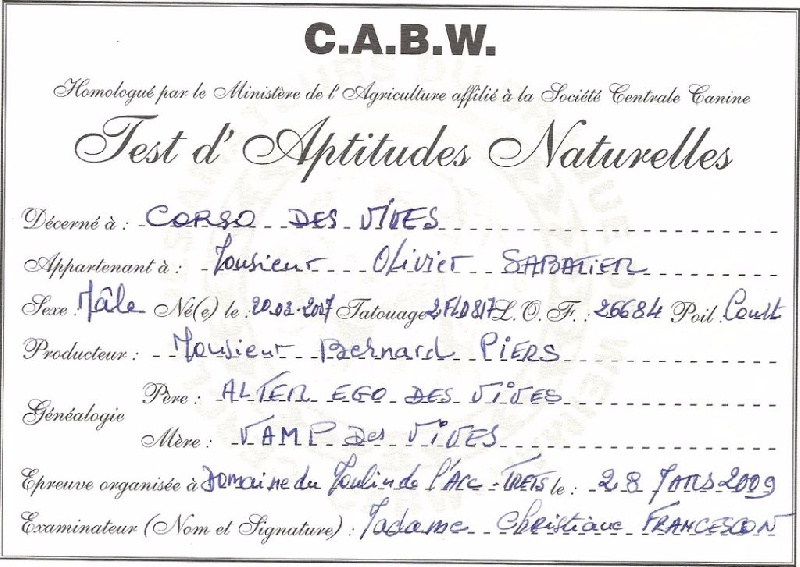 C.A.B.W.
Homologué par le Ministère de l'Agriculture affilié à la Société Centrale Canine
Test d'Aptitudes Naturelles
Décerné à : CORSO DES VIVES
Appartenant à : Monsieur Olivier SABATIER
Sexe Mâle Né(e) le : 20.03.2007 Tatouage 2FLD817 L.O.F. : 26684 Poil : Court
Producteur : Monsieur Bernard PIERS
Généalogie
Père : ALTER EGO DES VIVES
Mère : VAMP DES VIVES
Epreuve organisée à Domaine du Moulin de l'Arc - TRETS le : 28 Mars 2009
Examinateur (Nom et Signature) : Madame Christiane FRANCESCON